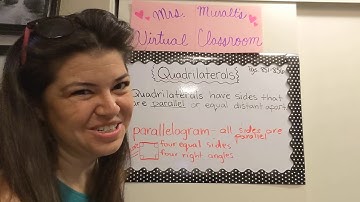 Mrs. Muralt's
Virtual Classroom
Quadrilaterals
Quadrilaterals have sides that
are parallel or equal distant apart
parallelogram - all sides are
parallel
four equal sides
four right angles